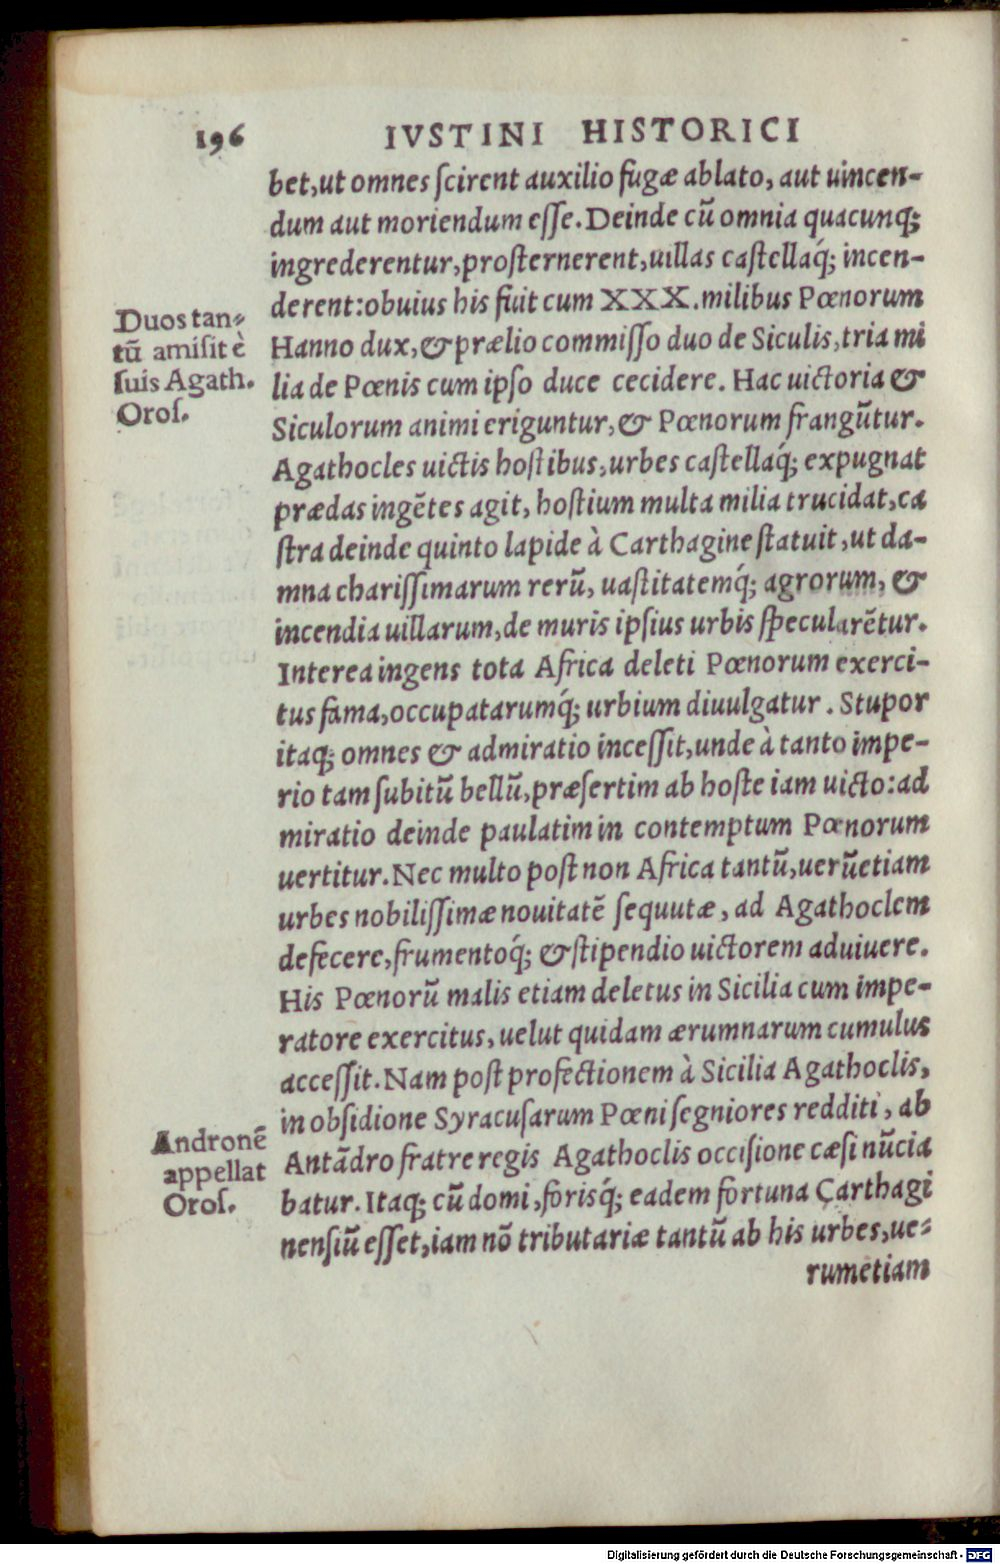 196 IVSTINI HISTORICI
bet, ut omnes scirent auxilio fugæ ablato, aut uincen-
dum aut moriendum esse. Deinde cū omnia quacunq;
ingrederentur, prosternerent, uillas castellaq́; incen-
derent: obuius his fuit cum XXX. milibus Pœnorum
Hanno dux, & prælio commisso duo de Siculis, tria mi
lia de Pœnis cum ipso duce cecidere. Hac uictoria &
Siculorum animi eriguntur, & Pœnorum frangūtur.
Agathocles uictis hostibus, urbes castellaq́; expugnat
prædas ingētes agit, hostium multa milia trucidat, ca
stra deinde quinto lapide à Carthagine statuit, ut da-
mna charissimarum rerū, uastitatemq́; agrorum, &
incendia uillarum, de muris ipsius urbis specularētur.
Interea ingens tota Africa deleti Pœnorum exerci-
tus fama, occupatarumq́; urbium diuulgatur. Stupor
itaq; omnes & admiratio incessit, unde à tanto impe-
rio tam subitū bellū, præsertim ab hoste iam uicto: ad
miratio deinde paulatim in contemptum Pœnorum
uertitur. Nec multo post non Africa tantū, uerūetiam
urbes nobilissimæ nouitatē sequutæ, ad Agathoclem
defecere, frumentoq́; & stipendio uictorem adiuuere.
His Pœnorū malis etiam deletus in Sicilia cum impe-
ratore exercitus, uelut quidam ærumnarum cumulus
accessit. Nam post profectionem à Sicilia Agathoclis,
in obsidione Syracusarum Pœni segniores redditi, ab
Antādro fratre regis Agathoclis occisione cæsi nūcia
batur. Itaq; cū domi, forisq́; eadem fortuna Carthagi
nensiū esset, iam nō tributariæ tantū ab his urbes, ue-
rumetiam
Duos tan-
tū amisit è
suis Agath.
Oros.
Andronē
appellat
Oros.
Digitalisierung gefördert durch die Deutsche Forschungsgemeinschaft - DFG